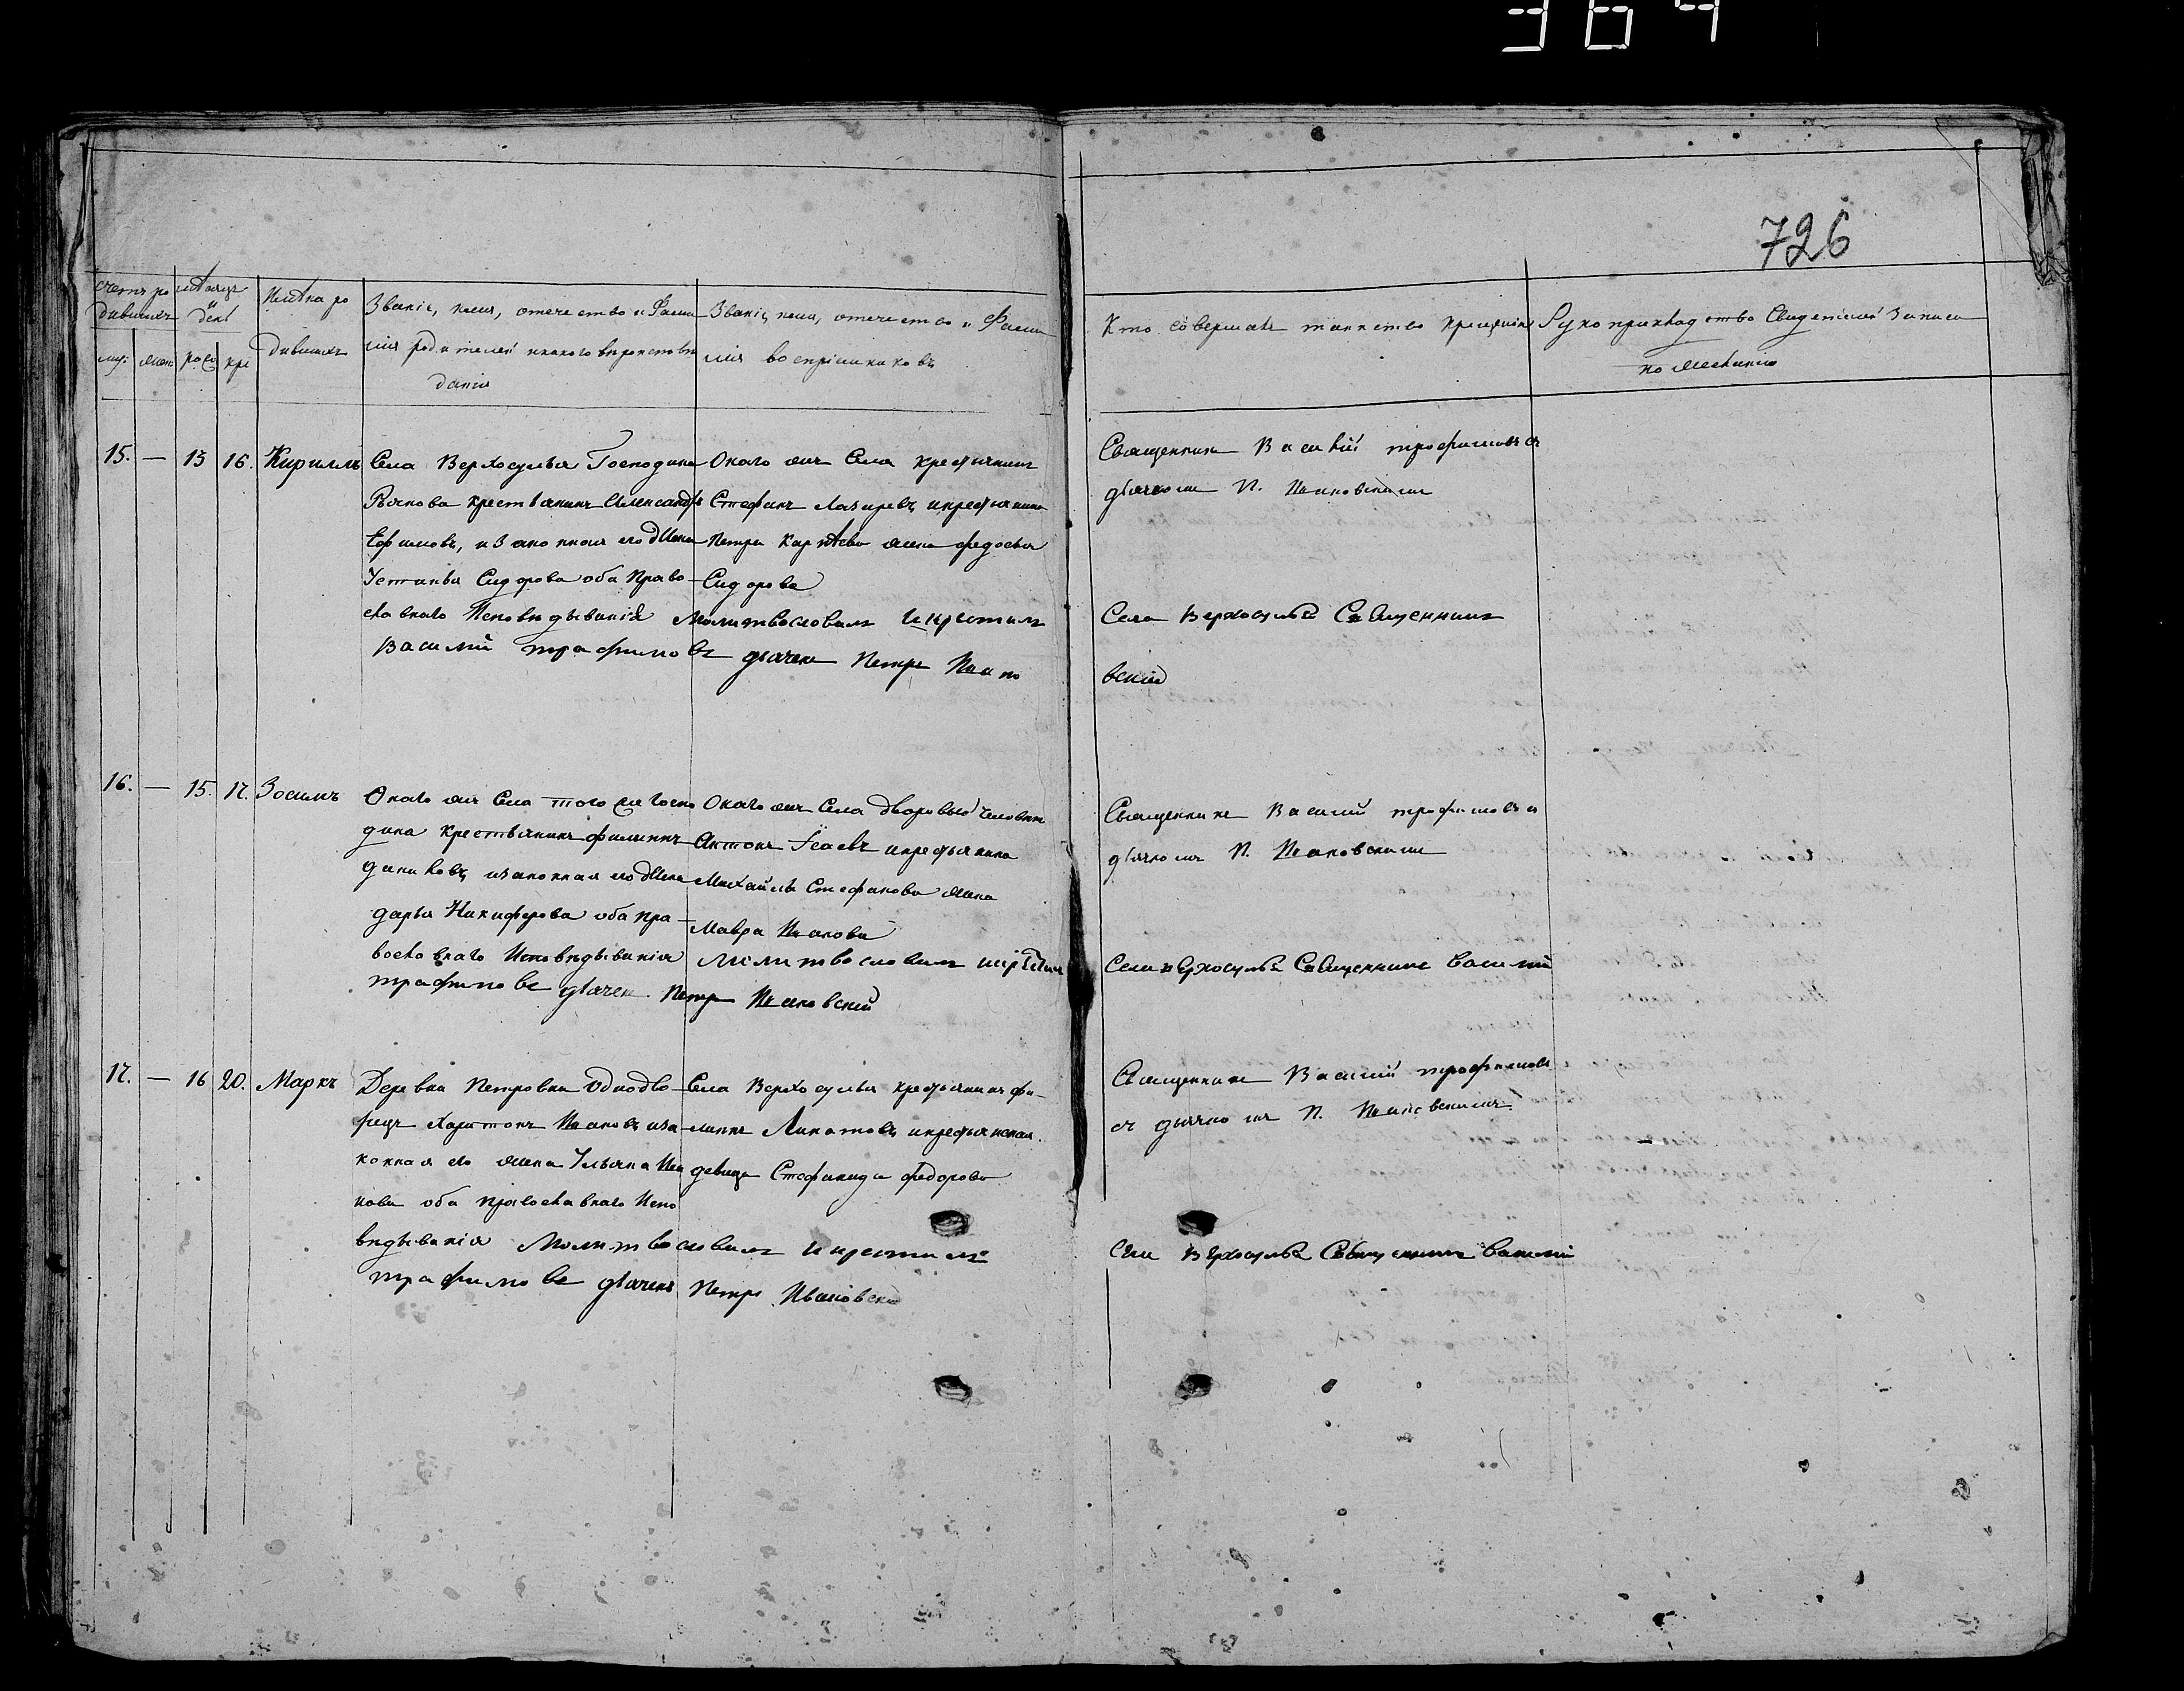 364
726
Счетъ ро
дившихъ
муж
женс
месяцъ
и
денѣ
рожд
кре
Имѣна ро
дившихъ
Званіе, имя, отечество и Фами
лія родителей и какого вероиспове
данія
Званіе, имя, отечество и Фами
лія воспріемниковъ
Кто совершалъ таинство крещенія
Рукоприкладство Свидетелей записи
по желанію
15. — 15 16. Кириллъ
Села Верхосулья Господина
крестьянинъ Александръ
Ефимовъ, и законная его жена
Устинья Сидорова оба право
славнаго Исповѣдыванія
Оного жъ Села крестьянинъ
Стефанъ Лазаревъ и крестьянина
Петра жена федосья
Сидорова
Священникъ Василій трофимовъ съ
дьячкомъ П. Ивановскимъ
Молитвословилъ и крестилъ Села Верхосулья Священникъ
Василий трафимовъ дьячекъ Петръ Ивано
вский
16. — 15. 17. Зосимъ
Оного жъ Села того же госпо
дина крестьянинъ филиппъ
даниловъ, и законная его жена
дарья Никифорова оба пра
вославнаго Исповѣдыванія
Оного жъ Села дворовый человекъ
Антонъ Ісаевъ и крестьянина
Михайлы Стефанова жена
Мавра Иванова
Священникъ Василий трофимовъ съ
дьячкомъ П. Ивановскимъ
Молитвословилъ и крестилъ Села верхосулья Священникъ василий
трафимовъ дьячек Петръ Ивановский
17. — 16 20. Маркъ
Деревни Петровки Однодво
рецъ Харитонъ Ивановъ и за
конная его жена Ульяна Ива
нова оба православнаго Испо
вѣдыванія
Села Верхосулья крестьянинъ фи
липпъ и крестьянская
девица Стефанида федорова
Священникъ Василий трофимовъ
съ дьячкомъ П. Ивановскимъ
Молитвословилъ и крестилъ Села верхосулья Священникъ василий
трафимовъ дьячекъ Петръ Ивановски